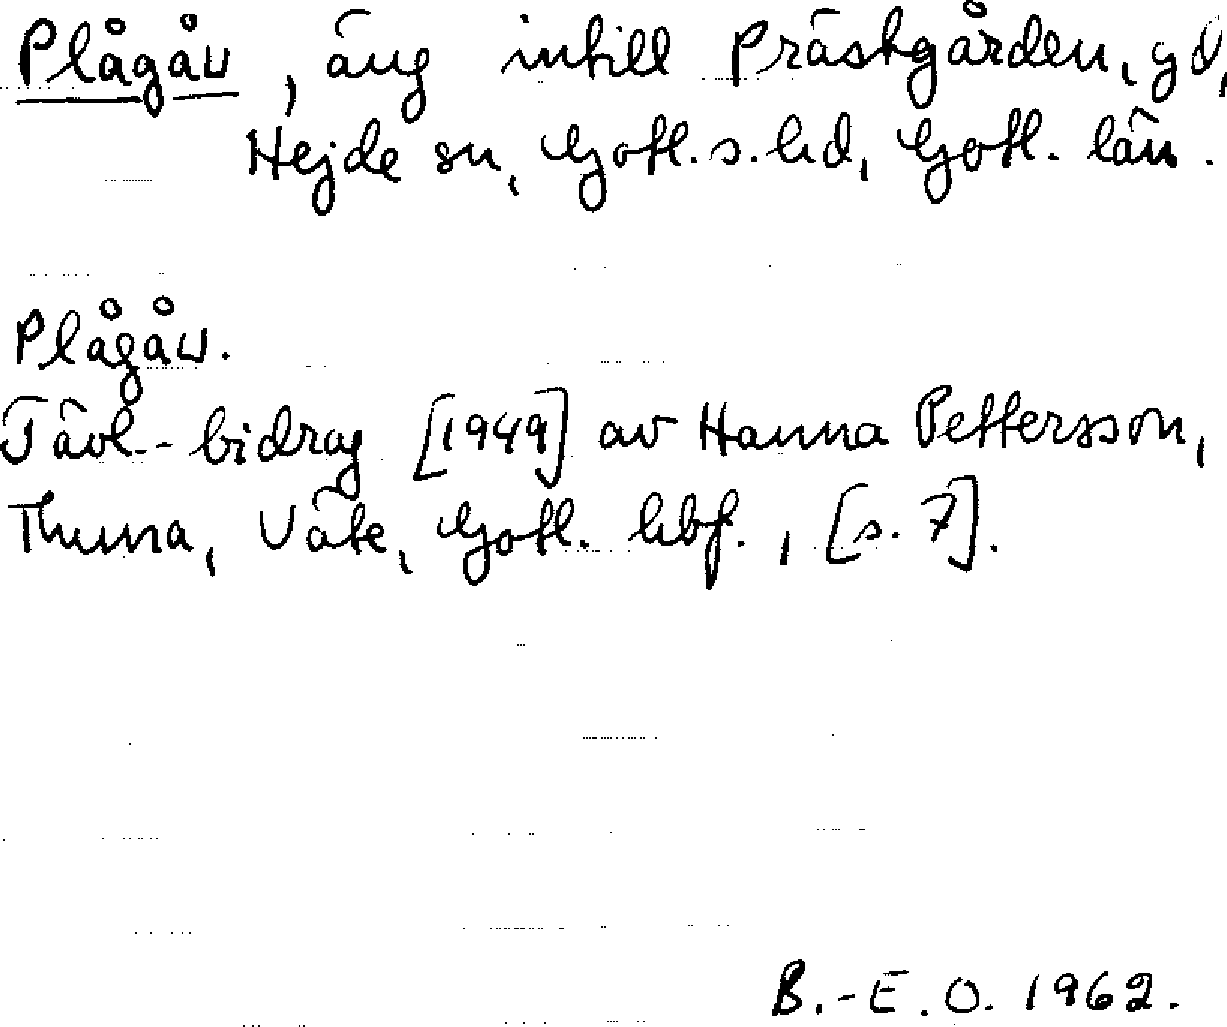 Plågåu, äng intill Prästgården, gd,
Hejde sn, Gotl. s. hd, Gotl. län.
Plågåu.
Tävl.-bidrag [1949] av Hanna Pettersson,
Thuna, Väte, Gotl. hbf., [s. 7].
B.-E. O. 1962.